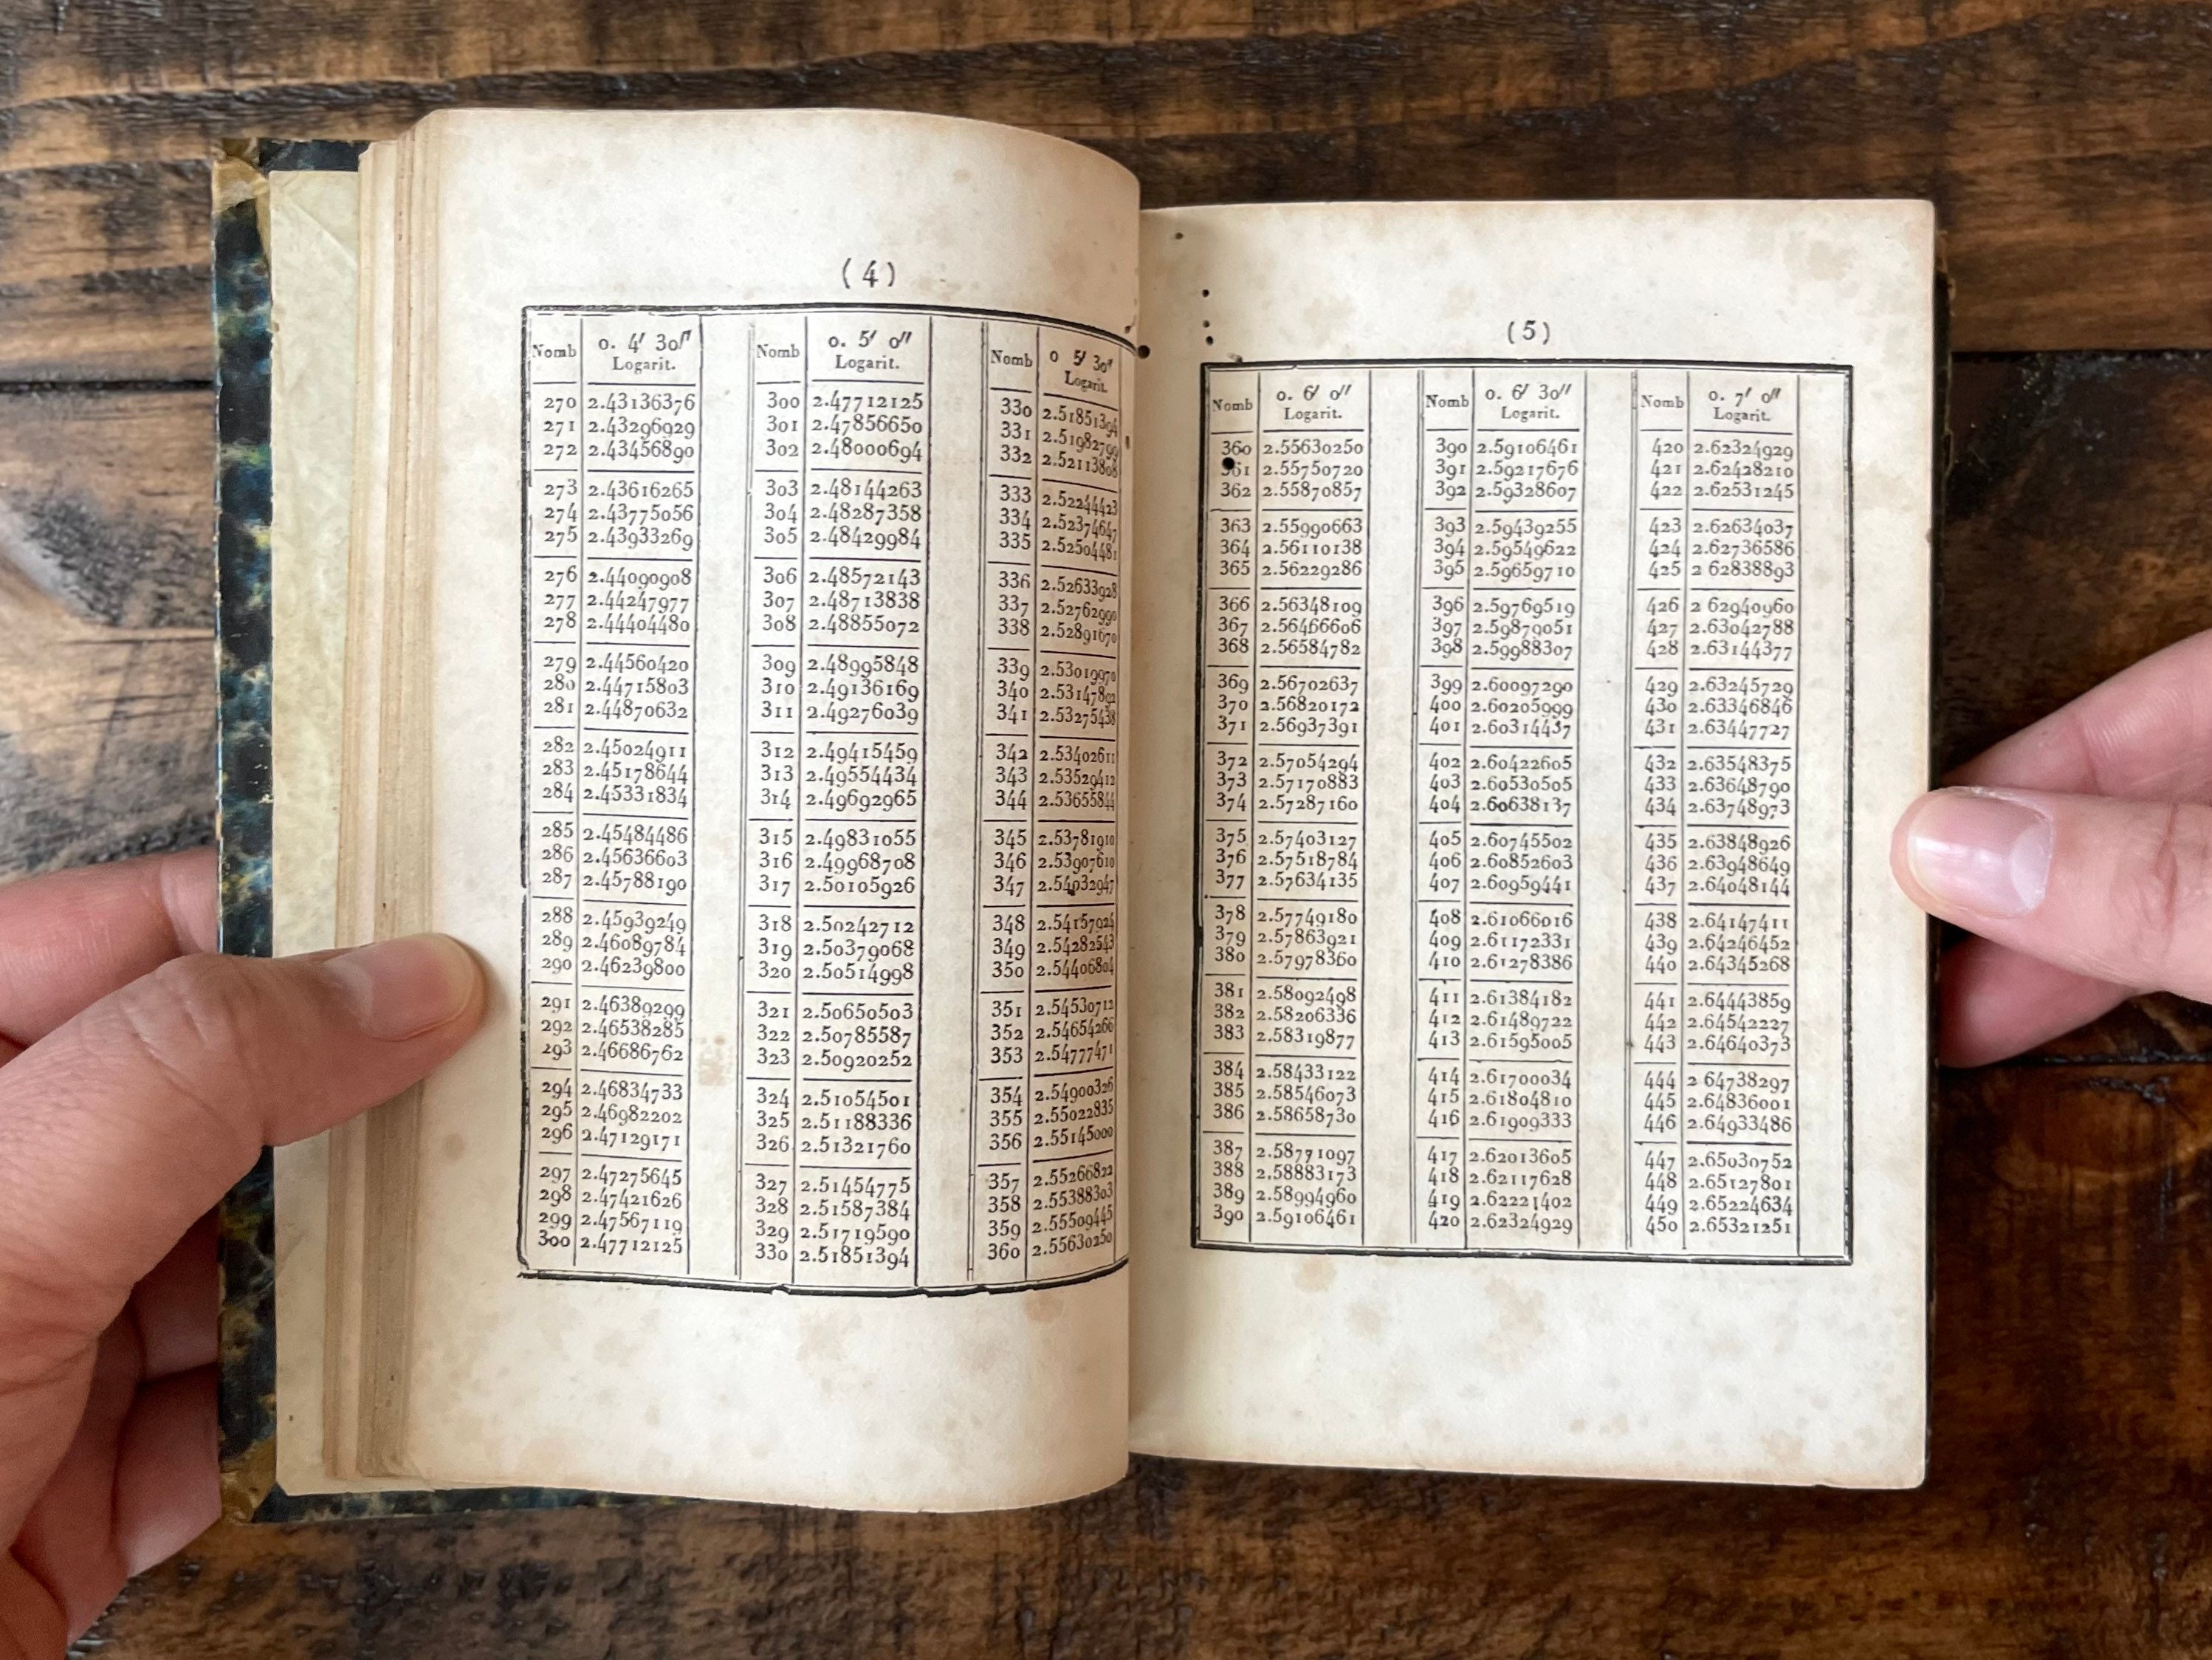 (4)
Nomb 0. 4′ 30″ Logarit. Nomb 0. 5′ 0″ Logarit. Nomb 0 5′ 30″ Logarit.
270 2.43136376 300 2.47712125 330 2.51851394
271 2.43296929 301 2.47856650 331 2.51982799
272 2.43456890 302 2.48000694 332 2.52113808
273 2.43616265 303 2.48144263 333 2.52244423
274 2.43775056 304 2.48287358 334 2.52374647
275 2.43933269 305 2.48429984 335 2.52504481
276 2.44090908 306 2.48572143 336 2.52633928
277 2.44247977 307 2.48713838 337 2.52762990
278 2.44404480 308 2.48855072 338 2.52891670
279 2.44560420 309 2.48995848 339 2.53019970
280 2.44715803 310 2.49136169 340 2.53147892
281 2.44870632 311 2.49276039 341 2.53275438
282 2.45024911 312 2.49415459 342 2.53402611
283 2.45178644 313 2.49554434 343 2.53529412
284 2.45331834 314 2.49692965 344 2.53655844
285 2.45484486 315 2.49831055 345 2.53781910
286 2.45636603 316 2.49968708 346 2.53907610
287 2.45788190 317 2.50105926 347 2.54032947
288 2.45939249 318 2.50242712 348 2.54157924
289 2.46089784 319 2.50379068 349 2.54282543
290 2.46239800 320 2.50514998 350 2.54406804
291 2.46389299 321 2.50650503 351 2.54530712
292 2.46538285 322 2.50785587 352 2.54654266
293 2.46686762 323 2.50920252 353 2.54777471
294 2.46834733 324 2.51054501 354 2.54900326
295 2.46982202 325 2.51188336 355 2.55022835
296 2.47129171 326 2.51321760 356 2.55145000
297 2.47275645 327 2.51454775 357 2.55266822
298 2.47421626 328 2.51587384 358 2.55388303
299 2.47567119 329 2.51719590 359 2.55509445
300 2.47712125 330 2.51851394 360 2.55630250
(5)
Nomb 0. 6′ 0″ Logarit. Nomb 0. 6′ 30″ Logarit. Nomb 0. 7′ 0″ Logarit.
360 2.55630250 390 2.59106461 420 2.62324929
361 2.55750720 391 2.59217676 421 2.62428210
362 2.55870857 392 2.59328607 422 2.62531245
363 2.55990663 393 2.59439255 423 2.62634037
364 2.56110138 394 2.59549622 424 2.62736586
365 2.56229286 395 2.59659710 425 2 62838893
366 2.56348109 396 2.59769519 426 2 62940960
367 2.56466606 397 2.59879051 427 2.63042788
368 2.56584782 398 2.59988307 428 2.63144377
369 2.56702637 399 2.60097290 429 2.63245729
370 2.56820172 400 2.60205999 430 2.63346846
371 2.56937391 401 2.60314437 431 2.63447727
372 2.57054294 402 2.60422605 432 2.63548375
373 2.57170883 403 2.60530505 433 2.63648790
374 2.57287160 404 2.60638137 434 2.63748973
375 2.57403127 405 2.60745502 435 2.63848926
376 2.57518784 406 2.60852603 436 2.63948649
377 2.57634135 407 2.60959441 437 2.64048144
378 2.57749180 408 2.61066016 438 2.64147411
379 2.57863921 409 2.61172331 439 2.64246452
380 2.57978360 410 2.61278386 440 2.64345268
381 2.58092498 411 2.61384182 441 2.64443859
382 2.58206336 412 2.61489722 442 2.64542227
383 2.58319877 413 2.61595005 443 2.64640373
384 2.58433122 414 2.61700034 444 2 64738297
385 2.58546073 415 2.61804810 445 2.64836001
386 2.58658730 416 2.61909333 446 2.64933486
387 2.58771097 417 2.62013605 447 2.65030752
388 2.58883173 418 2.62117628 448 2.65127801
389 2.58994960 419 2.62221402 449 2.65224634
390 2.59106461 420 2.62324929 450 2.65321251